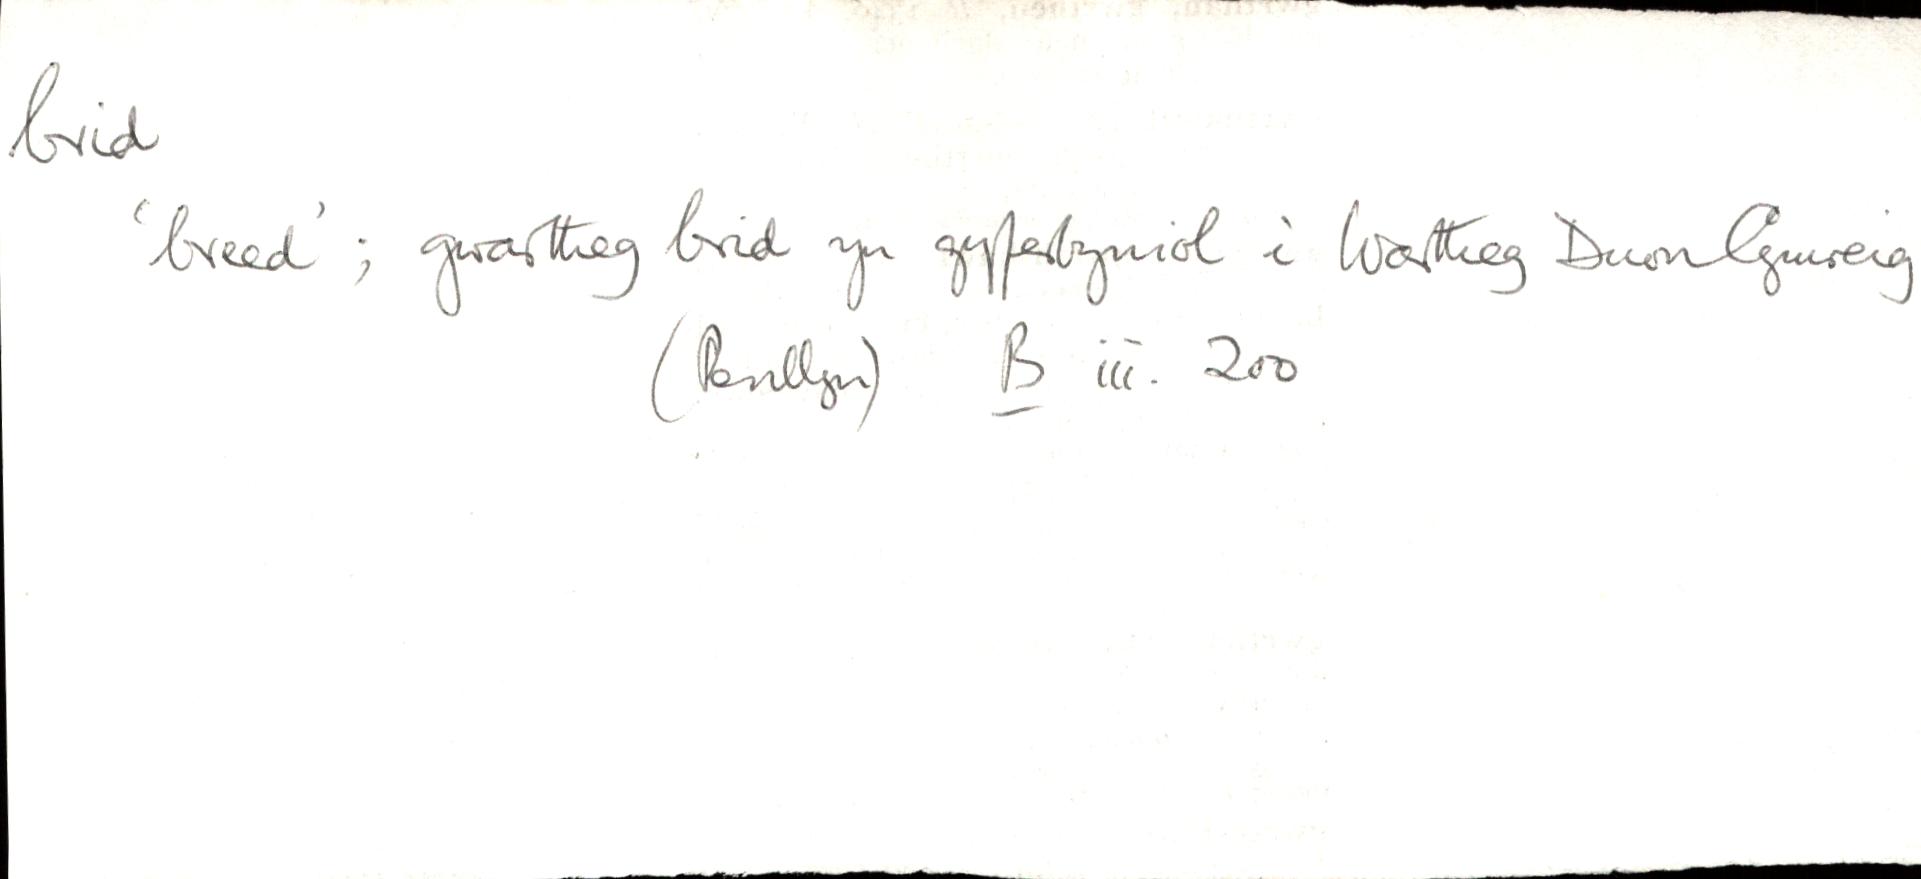 brid
'breed'; gwartheg brid yn gyferbyniol i Wartheg Duon Cymreig
(Penllyn) B iii. 200